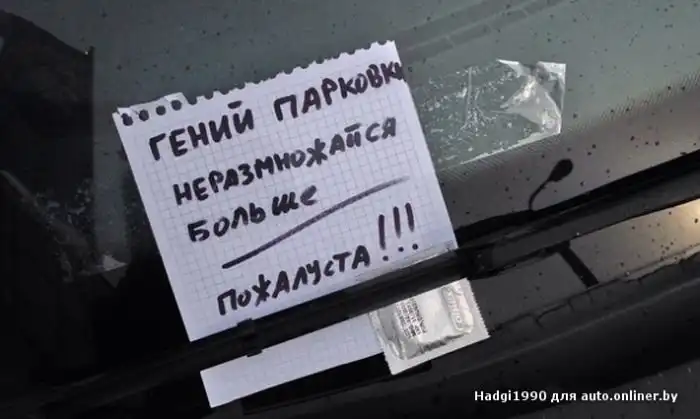 ГЕНИЙ ПАРКОВКИ
НЕРАЗМНОЖАЙСЯ
БОЛЬШЕ
ПОЖАЛУСТА!!!
Hadgi1990 для auto.onliner.by